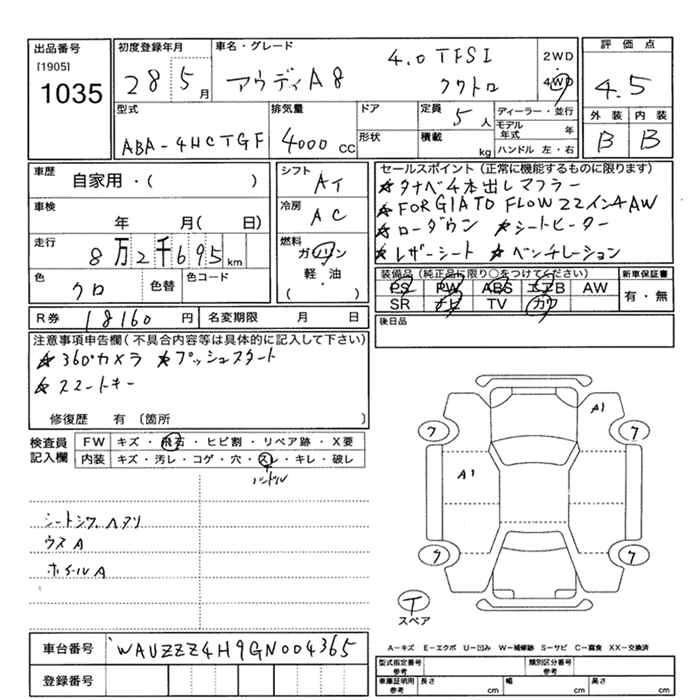 出品番号
[1905]
1035
初度登録年月
28 5月
車名・グレード
アウディA8
4.0 TFSI
クワトロ
2WD
4WD
評価点
4.5
外装 内装
B B
型式
ABA-4HCTGF
排気量
4000 cc
ドア
形状
定員
5人
積載
kg
ディーラー・並行
モデル年式 年
ハンドル 左・右
車歴
自家用・( )
車検
年 月( 日)
走行
8万2千695 km
色
クロ
色替
色コード
シフト
AT
冷房
AC
燃料
ガソリン
軽・油
( ・ )
セールスポイント(正常に機能するものに限ります)
★タナベ4本出しマフラー
★FORGIATO FLOW 22インチAW
★ローダウン ★シートヒーター
★レザーシート ★ベンチレーション
装備品(純正品に限り○をつけてください)
PS PW ABS エアB AW
SR ナビ TV カワ
新車保証書
有・無
R券 18160 円
名変期限 月 日
後日品
注意事項申告欄(不具合内容等は具体的に記入して下さい)
★360°カメラ ★プッシュスタート
★スマートキー
修復歴 有〔箇所 〕
検査員
記入欄
FW キズ・飛石・ヒビ割・リペア跡・X要
内装 キズ・汚レ・コゲ・穴・スレ・キレ・破レ
ハンドル
シートシワ、ヘタリ
ウスA
ホイールA
A1
ワ ワ
A1
ワ ワ
T
スペア
A−キズ E−エクボ U−凹み W−補修跡 S−サビ C−腐食 XX−交換済
車台番号 WAUZZZ4H9GN004365
登録番号
型式指定番号
参考
類別区分番号
参考
車庫証明用
参考
長さ cm 幅 cm 高さ cm